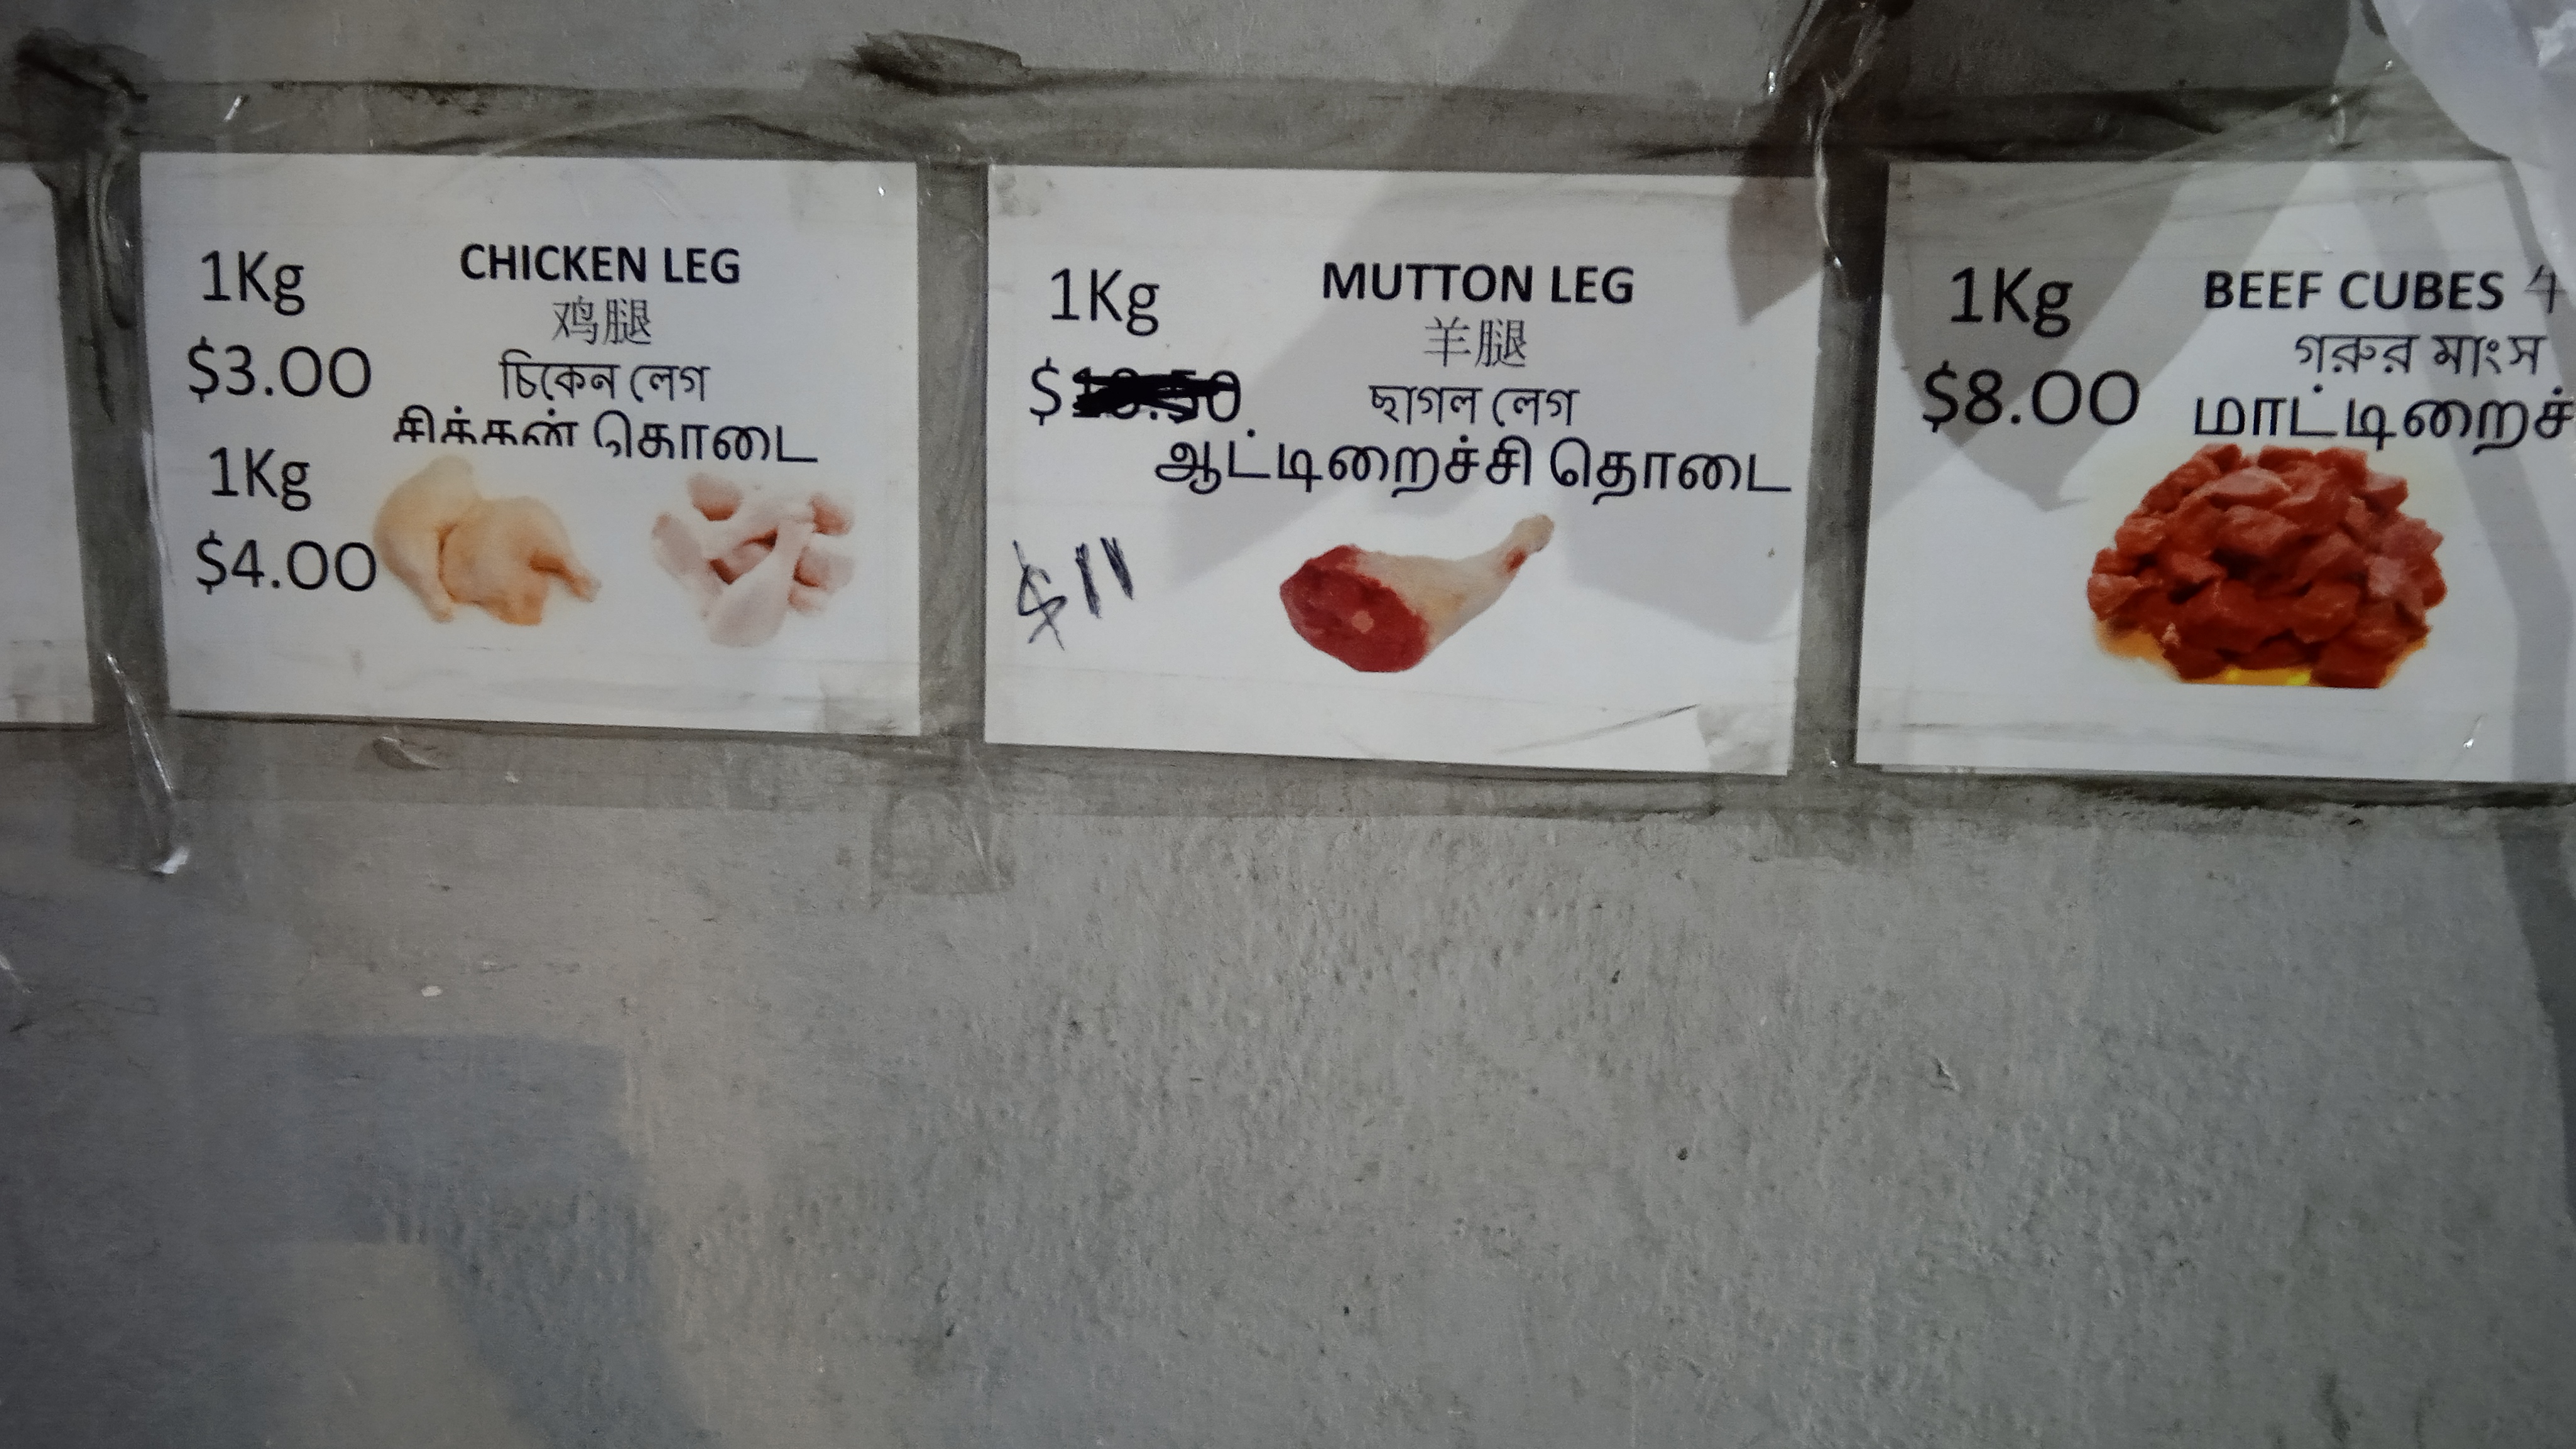 1Kg
$3.00
1Kg
$4.00
CHICKEN LEG
鸡腿
চিকেন লেগ
சிக்கன் தொடை
1Kg
$
$11
MUTTON LEG
羊腿
ছাগল লেগ
ஆட்டிறைச்சி தொடை
1Kg
$8.00
BEEF CUBES
গরুর মাংস